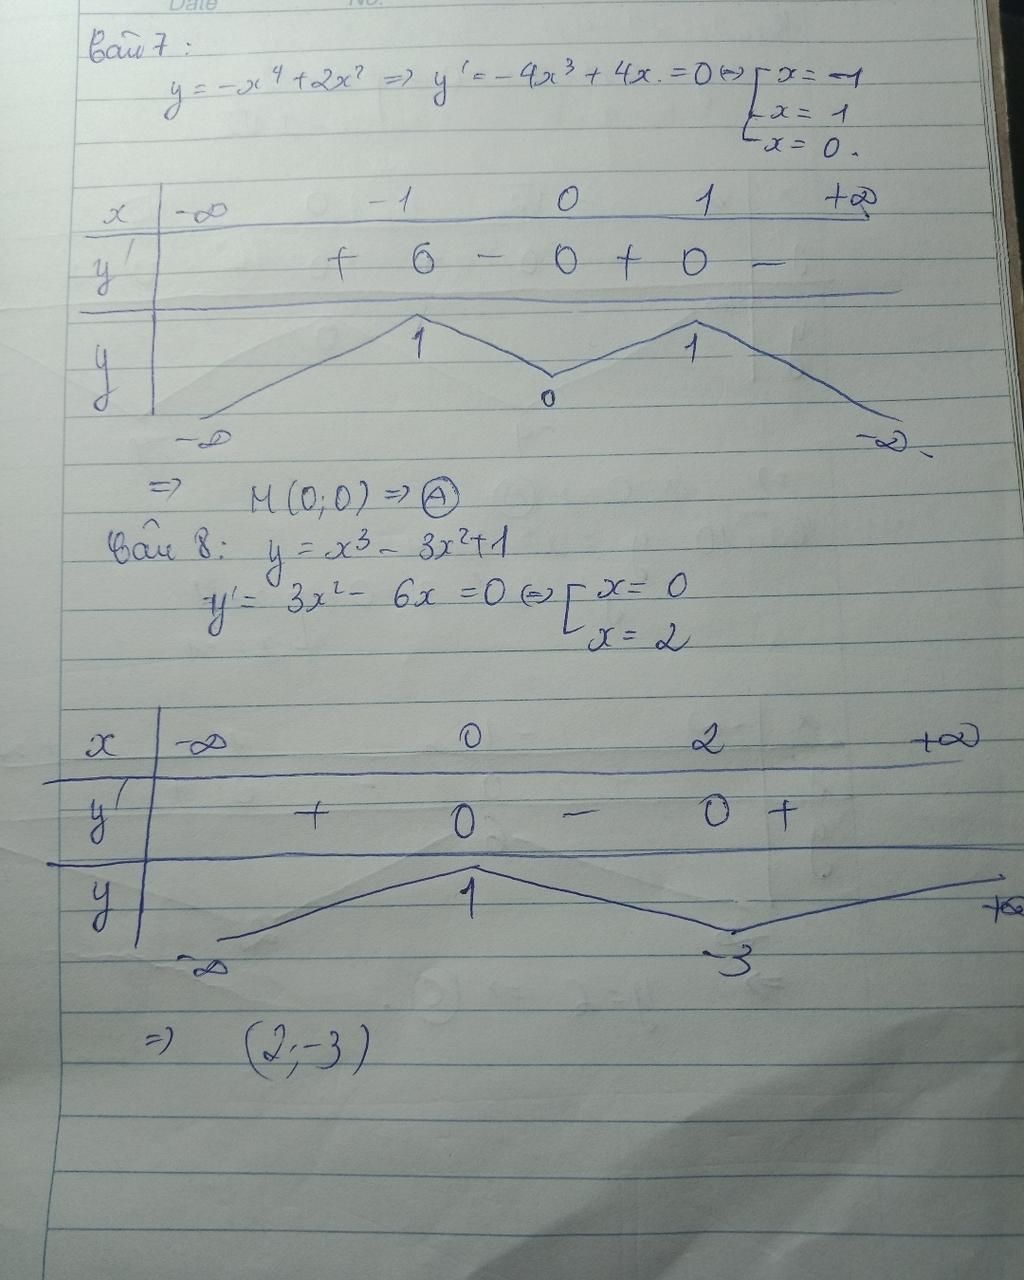 Date No.
Câu 7 :
y = -x⁴ + 2x² => y' = -4x³ + 4x. = 0 <=> [ x = -1
x = 1
x = 0.
x -∞ -1 0 1 +∞
y' + 0 - 0 + 0 -
y 1 1
0
-∞ -∞
=> M(0;0) => A
Câu 8: y = x³ - 3x² + 1
y' = 3x² - 6x = 0 <=> [ x = 0
x = 2
x -∞ 0 2 +∞
y' + 0 - 0 +
y 1 +∞
-∞ -3
=> (2;-3)